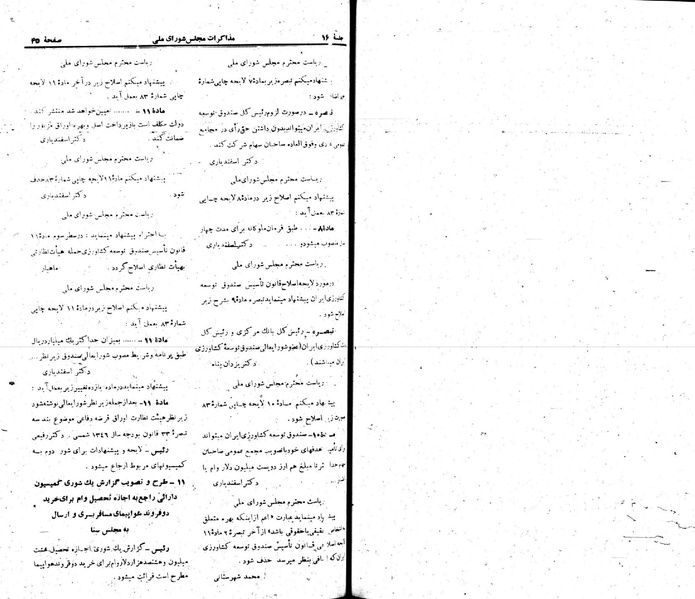 جلسهٔ ۱۶
مذاکرات مجلس شورای ملی
صفحهٔ ۴۵
ریاست محترم مجلس شورای ملی
پیشنهاد میکنم تبصره زیر بمادهٔ ۷ لایحه چاپی شمارهٔ
شود :
تبصره ـ در صورت لزوم رئیس کل صندوق توسعه
کشاورزی ایران میتواند بدون داشتن حق رأی در مجامع
عمومی عادی وفوق العاده صاحبان سهام شرکت کند.
دکتر اسفندیاری
ریاست محترم مجلس شورای ملی
پیشنهاد میکنم اصلاح زیر در مادهٔ ۸ لایحه چاپی
شمارهٔ ۸۳ بعمل آید :
مادهٔ ۸ـ . . . . طبق فرمان ملوکانه برای مدت چهار
سال منصوب میشود و . . . . دکتر اسفندیاری
ریاست محترم مجلس شورای ملی
در مورد لایحه اصلاح قانون تأسیس صندوق توسعه
کشاورزی ایران پیشنهاد مینماید تبصره مادهٔ ۹ بشرح زیر
اصلاح شود .
تبصره ـ رئیس کل بانك مرکزی و رئیس کل
بانك کشاورزی ایران (عضو شورایعالی صندوق توسعه کشاورزی
ایران میباشند). دکتر یزدان پناه
ریاست محترم مجلس شورای ملی
پیشنهاد میکنم مادهٔ ۱۰ لایحه چاپی شمارهٔ ۸۳
بصورت زیر اصلاح شود .
مادهٔ ۱۰ـ صندوق توسعه کشاورزی ایران میتواند
برای تأمین هدفهای خود با تصویب مجمع عمومی صاحبان
سهام حداکثر تا مبلغ هم ارز دویست میلیون دلار وام یا
دکتر اسفندیاری
ریاست محترم مجلس شورای ملی
پیشنهاد مینماید عبارت « اعم از اینکه بهره متعلق
باشخاص حقیقی یا حقوقی باشد» از آخر تبصرهٔ ۲ مادهٔ ۱۱
لایحه اصلاحی قانون تأسیس صندوق توسعه کشاورزی
ایران که اضافی بنظر میرسد حذف شود .
محمد شهرستانی
ریاست محترم مجلس شورای ملی
پیشنهاد میکنم اصلاح زیر در آخر مادهٔ ۱۱ لایحه
چاپی شمارهٔ ۸۳ بعمل آید .
مادهٔ ۱۱ ـ . . . . . . تعیین خواهد شد منتشر کند.
دولت مکلف است بازپرداخت اصل و بهره اوراق مزبور را
ضمانت کند. دکتر اسفندیاری
ریاست محترم مجلس شورای ملی
پیشنهاد میکنم مادهٔ ۱۱ لایحه چاپی شمارهٔ ۸۳ حذف
شود . دکتر اسفندیاری
ریاست محترم مجلس شورای ملی
با احترام پیشنهاد مینماید : در سطر سوم مادهٔ ۱۱
قانون تأسیس صندوق توسعه کشاورزی جمله هیأت نظارتی
بهیأت نظاری اصلاح گردد . ماهیار
ریاست محترم مجلس شورای ملی
پیشنهاد میکنم اصلاح زیر در مادهٔ ۱۱ لایحه چاپی
شمارهٔ ۸۳ بعمل آید :
مادهٔ ۱۱ـ . . . . . بمیزان حداکثر یك میلیارد ریال
طبق برنامه و شرایط مصوب شورایعالی صندوق زیر نظر . . .
دکتر اسفندیاری
پیشنهاد مینماید در ماده یازده تغییر زیر بعمل آید :
مادهٔ ۱۱ـ بعد از جمله زیر نظر شورایعالی نوشته شود
زیر نظر هیئت نظارت اوراق قرضه دفاعی موضوع بند سه
تبصرهٔ ۳۳ قانون بودجه سال ۱۳۴۶ شمسی . دکتر رفیعی
رئیس ـ لایحه و پیشنهادات برای شور دوم به
کمیسیونهای مربوط ارجاع میشود.
۱۱ ـ طرح و تصویب گزارش یك شوری کمیسیون
دارائی راجع به اجازه تحصیل وام برای خرید
دو فروند هواپیمای مسافربری و ارسال
به مجلس سنا
رئیس ـ گزارش یك شوری اجازه تحصیل هشت
میلیون و هشتصد هزار دلار وام برای خرید دو فروند هواپیما
مطرح است قرائت میشود.